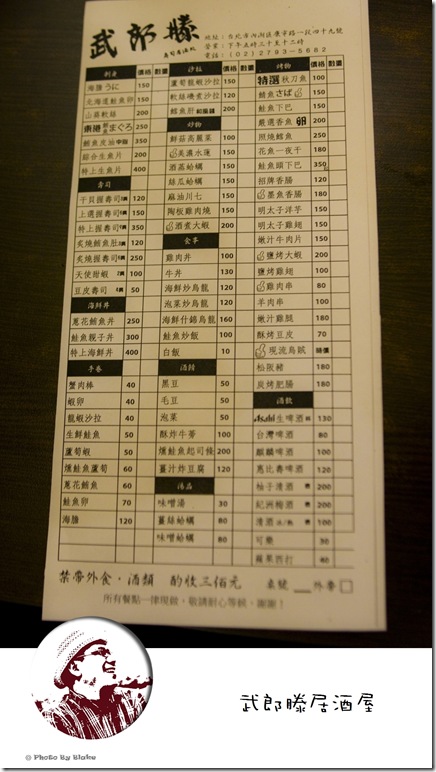 武郎滕
壽司居酒處
地址：台北市內湖區康寧路一段四十九號
營業：下午五時三十至十二時
電話：(02)2793-5682
刺身 價格 數量
海膽うに 150
北海道鮭魚卵 150
山藥軟絲 200
東港鮮まぐろ 250
鮪魚皮油 400
綜合生魚片 200
特上生魚片 400
壽司
干貝握壽司 120
上選握壽司 150
特上握壽司 350
炙燒鮪魚肚 200
炙燒握壽司 250
天使甜蝦 100
豆皮壽司 50
海鮮丼
蔥花鮪魚丼 250
鮭魚親子丼 300
特上海鮮丼 400
手卷
蟹肉棒 40
蝦卵 40
龍蝦沙拉 40
生鮮鮭魚 50
蘆筍蝦 50
燻鮭魚蘆筍 60
蔥花鮪魚 60
鮭魚卵 70
海膽 120
沙拉 價格 數量
蘆筍龍蝦沙拉 150
軟絲磯煮沙拉 120
鱈魚肝 200
炒物
鮮菇高麗菜 100
美濃水蓮 150
酒蒸蛤蠣 150
絲瓜蛤蠣 150
麻油川七 150
陶板雞肉燒 150
酒煮大蝦 200
食事
雞肉丼 100
牛丼 130
海鮮炒烏龍 120
泡菜炒烏龍 120
海鮮什錦烏龍 160
鮭魚炒飯 100
白飯 10
酒餚
黑豆 50
毛豆 50
泡菜 50
酥炸牛蒡 100
燻鮭魚起司捲 200
薑汁炸豆腐 120
湯品
味噌湯 30
薑絲蛤蠣 80
味噌蛤蠣 80
烤物 價格 數量
特選秋刀魚 100
鯖魚さば
鮭魚下巴
嚴選香魚 卵 200
照燒鱈魚 250
花魚一夜干 180
鮭魚頭下巴 350
招牌香腸 120
墨魚香腸 180
明太子洋芋 150
嫩汁牛肉片 150
鹽烤大蝦 200
鹽烤雞翅 100
雞肉串 80
羊肉串 100
嫩汁雞腿 180
酥烤豆皮 70
現流烏賊 時價
松阪豬 180
炭烤肥腸 180
酒飲
Asahi生啤酒 130
台灣啤酒 80
麒麟啤酒 100
惠比壽啤酒 120
柚子清酒 200
紀洲梅酒 200
清酒 200
可樂 30
蘋果西打 40
禁帶外食・酒類 酌收三佰元 桌號＿ 外帶□
所有餐點一律現做，敬請耐心等候，謝謝！
武郎滕居酒屋
© Photo By Blake